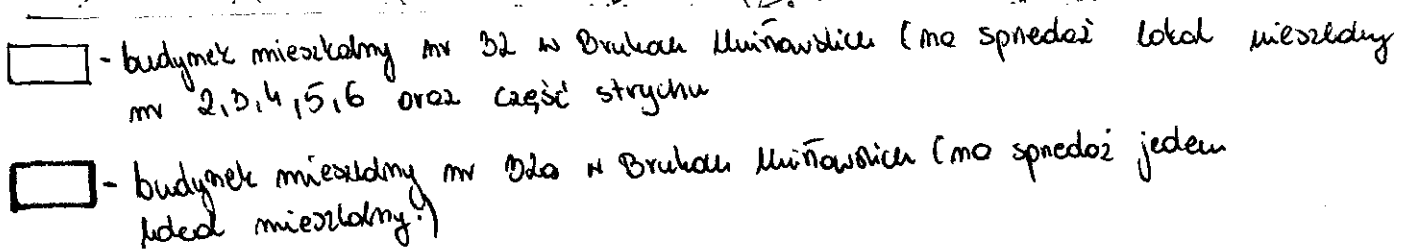 - budynek mieszkalny nr 32 w Brukach Unisławskich (na sprzedaż lokal mieszkalny
nr 2,3,4,5,6 oraz część strychu
- budynek mieszkalny nr 32a w Brukach Unisławskich (na sprzedaż jeden
lokal mieszkalny.)